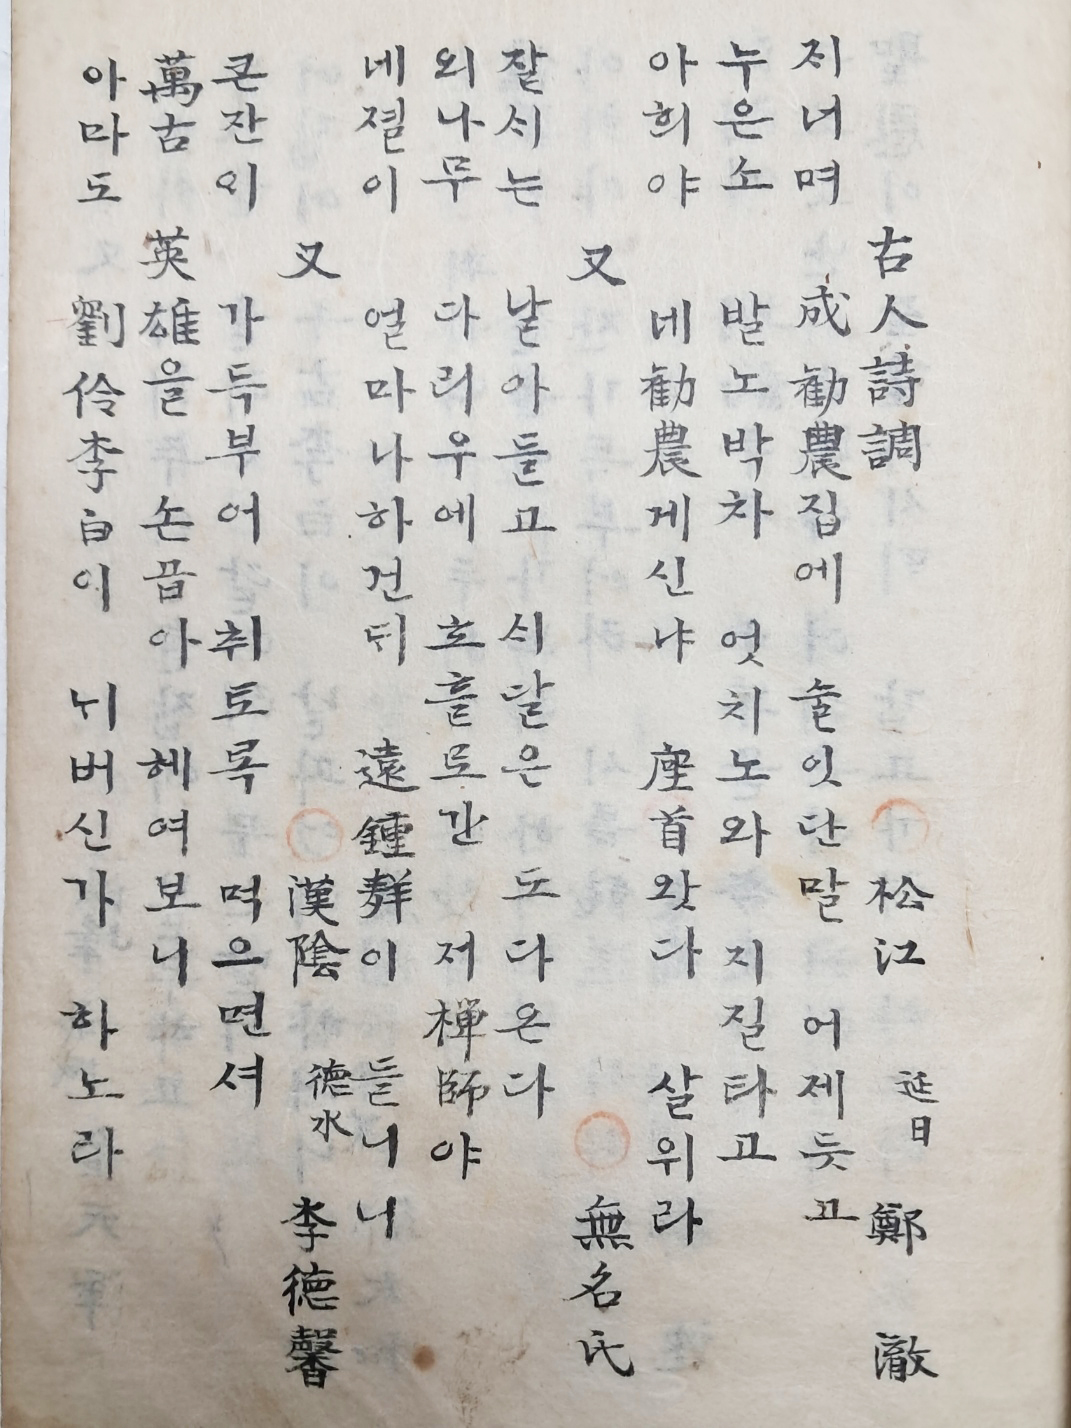 古人詩調 松江 延日 鄭 澈
지너며 成勸農집에 술잇단말 어제듯고
누은소 발노박차 엇치노와 지질타고
아희야 네勸農게신냐 座首왓다 살위라
又 無名氏
잘시는 날아들고 시달은 도다온다
외나무 다리우에 호흘로간 저禪師야
네졀이 얼마나하건디 遠鍾聲이 들니니
又 漢陰 德水 李德馨
큰잔의 가득부어 취토록 먹으면셔
萬古 英雄을 손곱아 헤여보니
아마도 劉伶李白이 뉘버신가 하노라